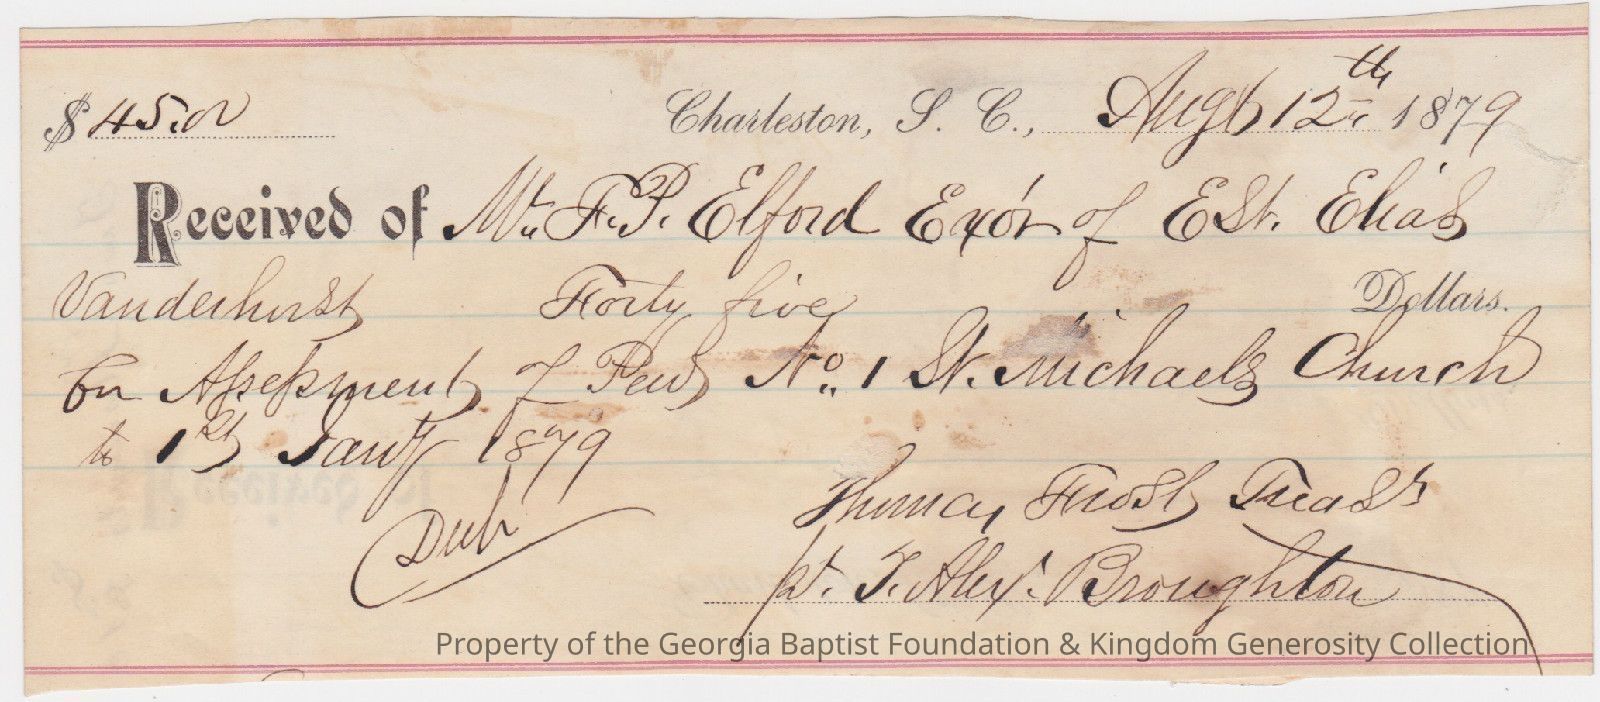 $ 45.00 Charleston, S. C., Augt 12th 1879
Received of Mr. F. P. Elford Exór of ESt. Elias
Vanderhorst Forty five Dollars.
for Assessment of Pew No. 1 St. Michaels Church
to 1st Jany 1879
Thomas Frost Treasr
pr. T. Alexr. Broughton
Property of the Georgia Baptist Foundation & Kingdom Generosity Collection